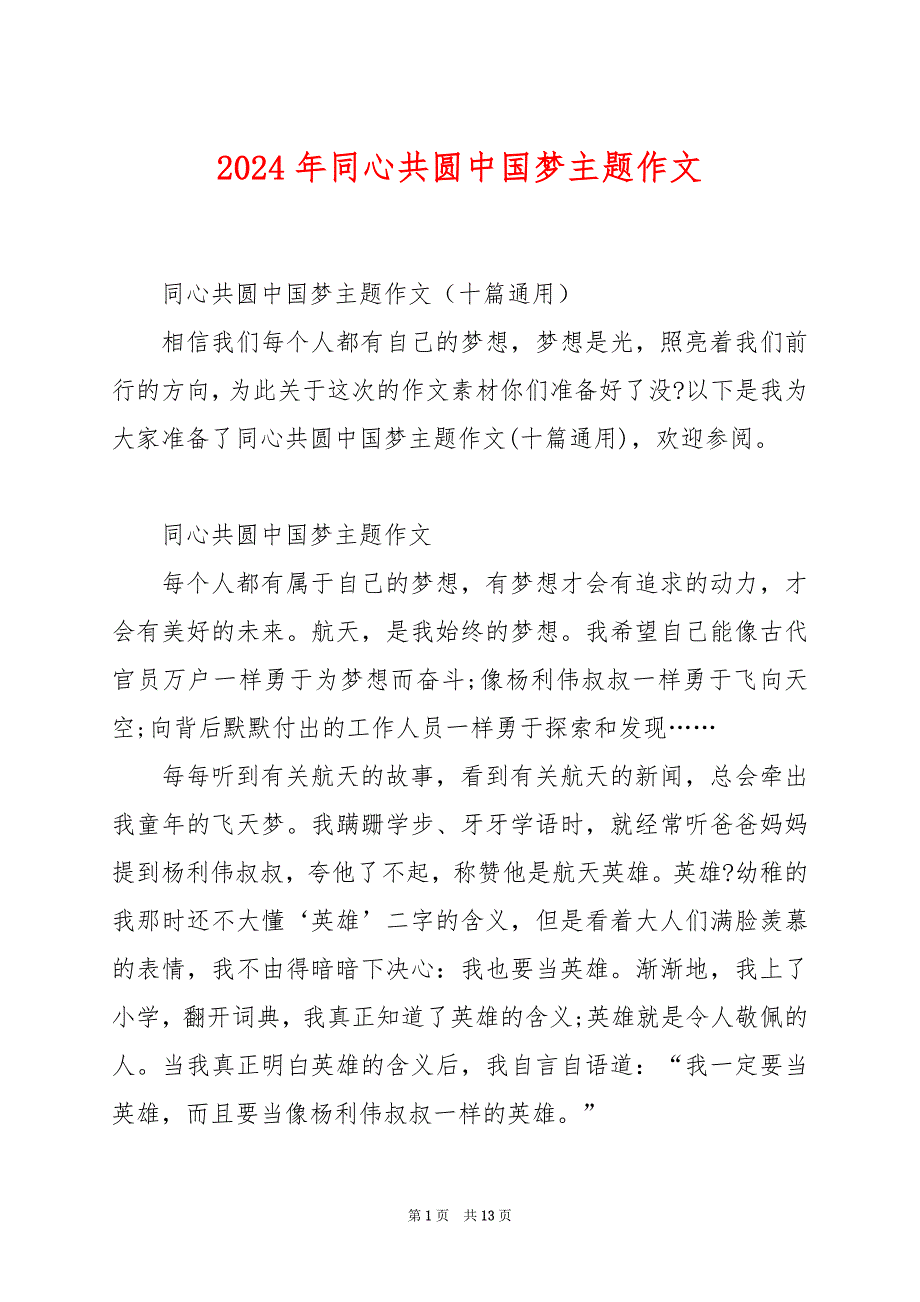 2024年同心共圆中国梦主题作文
同心共圆中国梦主题作文（十篇通用）
相信我们每个人都有自己的梦想，梦想是光，照亮着我们前
行的方向，为此关于这次的作文素材你们准备好了没?以下是我为
大家准备了同心共圆中国梦主题作文(十篇通用)，欢迎参阅。
同心共圆中国梦主题作文
每个人都有属于自己的梦想，有梦想才会有追求的动力，才
会有美好的未来。航天，是我始终的梦想。我希望自己能像古代
官员万户一样勇于为梦想而奋斗;像杨利伟叔叔一样勇于飞向天
空;向背后默默付出的工作人员一样勇于探索和发现……
每每听到有关航天的故事，看到有关航天的新闻，总会牵出
我童年的飞天梦。我蹒跚学步、牙牙学语时，就经常听爸爸妈妈
提到杨利伟叔叔，夸他了不起，称赞他是航天英雄。英雄?幼稚的
我那时还不大懂‘英雄’二字的含义，但是看着大人们满脸羡慕
的表情，我不由得暗暗下决心：我也要当英雄。渐渐地，我上了
小学，翻开词典，我真正知道了英雄的含义;英雄就是令人敬佩的
人。当我真正明白英雄的含义后，我自言自语道：“我一定要当
英雄，而且要当像杨利伟叔叔一样的英雄。”
第 1 页 共 13 页